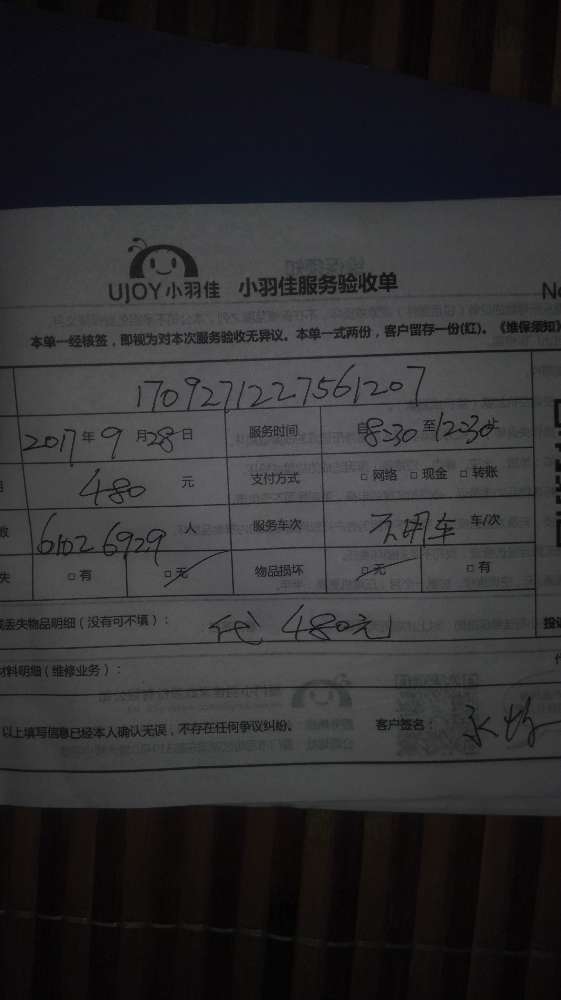 UJOY小羽佳 小羽佳服务验收单
No
本单一经核签，即视为对本次服务验收无异议。本单一式两份，客户留存一份(红)。《维保须知》
1709271227561207
2017年9月28日 服务时间 自8:30至12:30止
480元 支付方式 □网络 □现金 □转账
6102 6929人 服务车次 不用车 车/次
失 □有 □无 物品损坏 □无 □有
丢失物品明细（没有可不填）： 代 480元
材料明细（维修业务）：
以上填写信息已经本人确认无误，不存在任何争议纠纷。 客户签名：